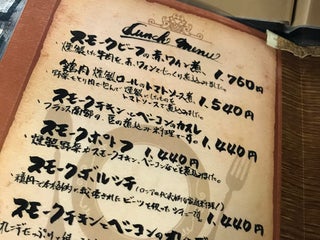 Lunch menu
スモークビーフの赤ワイン煮 1,760円
燻製した牛肉を、赤ワインでじっくり煮込みました。
鶏肉 燻製ロールのトマトソース煮 1,540円
野菜などを肉で包んで燻製したものを
トマトソースで煮込みました。
スモークチキンとベーコンのカスレ 1,440円
フランス南部の、豆の煮込み料理です。
スモークポトフ 1,440円
燻製野菜やスモークチキン、ベーコンなどを煮込みました。
スモークボルシチ 1,440円
スモークチキンとベーコンの